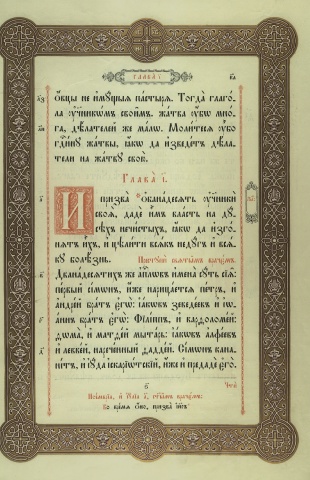 ГЛАВА І
ѻ҆́вцы не и҆мꙋ́щыѧ па́стырѧ. Тогда̀ глаго́-
ла ᲂу҆чн҃кѡ́мъ свои̑мъ: жа́тва ᲂу҆́бѡ мно́-
га, дѣ́лателей же ма́лѡ. Моли́тесѧ ᲂу҆̀бо
гдⷭ҇и́нꙋ жа́твы, ꙗ҆́кѡ да и҆зведе́тъ дѣ́ла-
тели на жа́твꙋ свою̀.
ГЛАВА̀ І.
И҆ призва̀ ѻ҆бана́десѧть ᲂу҆чн҃кѝ
своѧ̑, дадѐ и҆̀мъ вла́сть на дꙋ́-
сѣхъ нечи́стыхъ, ꙗ҆́кѡ да и҆зго́-
нѧтъ и҆̀хъ, и҆ цѣли́ти всѧ́къ недꙋ́гъ и҆ всѧ́-
кꙋ болѣ́знь.
Двана́десѧтихъ же а҆пⷭ҇лѡвъ и҆мена̀ сꙋ́ть сїѧ̑:
пе́рвый сі́мѡнъ, и҆́же нарица́етсѧ пе́тръ, и҆
а҆ндре́й бра́тъ є҆гѡ̀: і҆а́кѡвъ зеведе́евъ и҆ і҆ѡ-
а́ннъ бра́тъ є҆гѡ̀: фїлі́ппъ, и҆ варѳоломе́й:
ѳѡма̀, и҆ матѳе́й мыта́рь: і҆а́кѡвъ а҆лфе́евъ
и҆ леввѐй, нарече́нный ѳадде́й: Сі́мѡнъ кана-
ни́тъ, и҆ і҆ꙋ́да і҆скарїѡ́тскїй, и҆́же и҆ предадѐ є҆го̀.
Во вре́мѧ ѻ҆́но, призва̀ і҆и҃съ